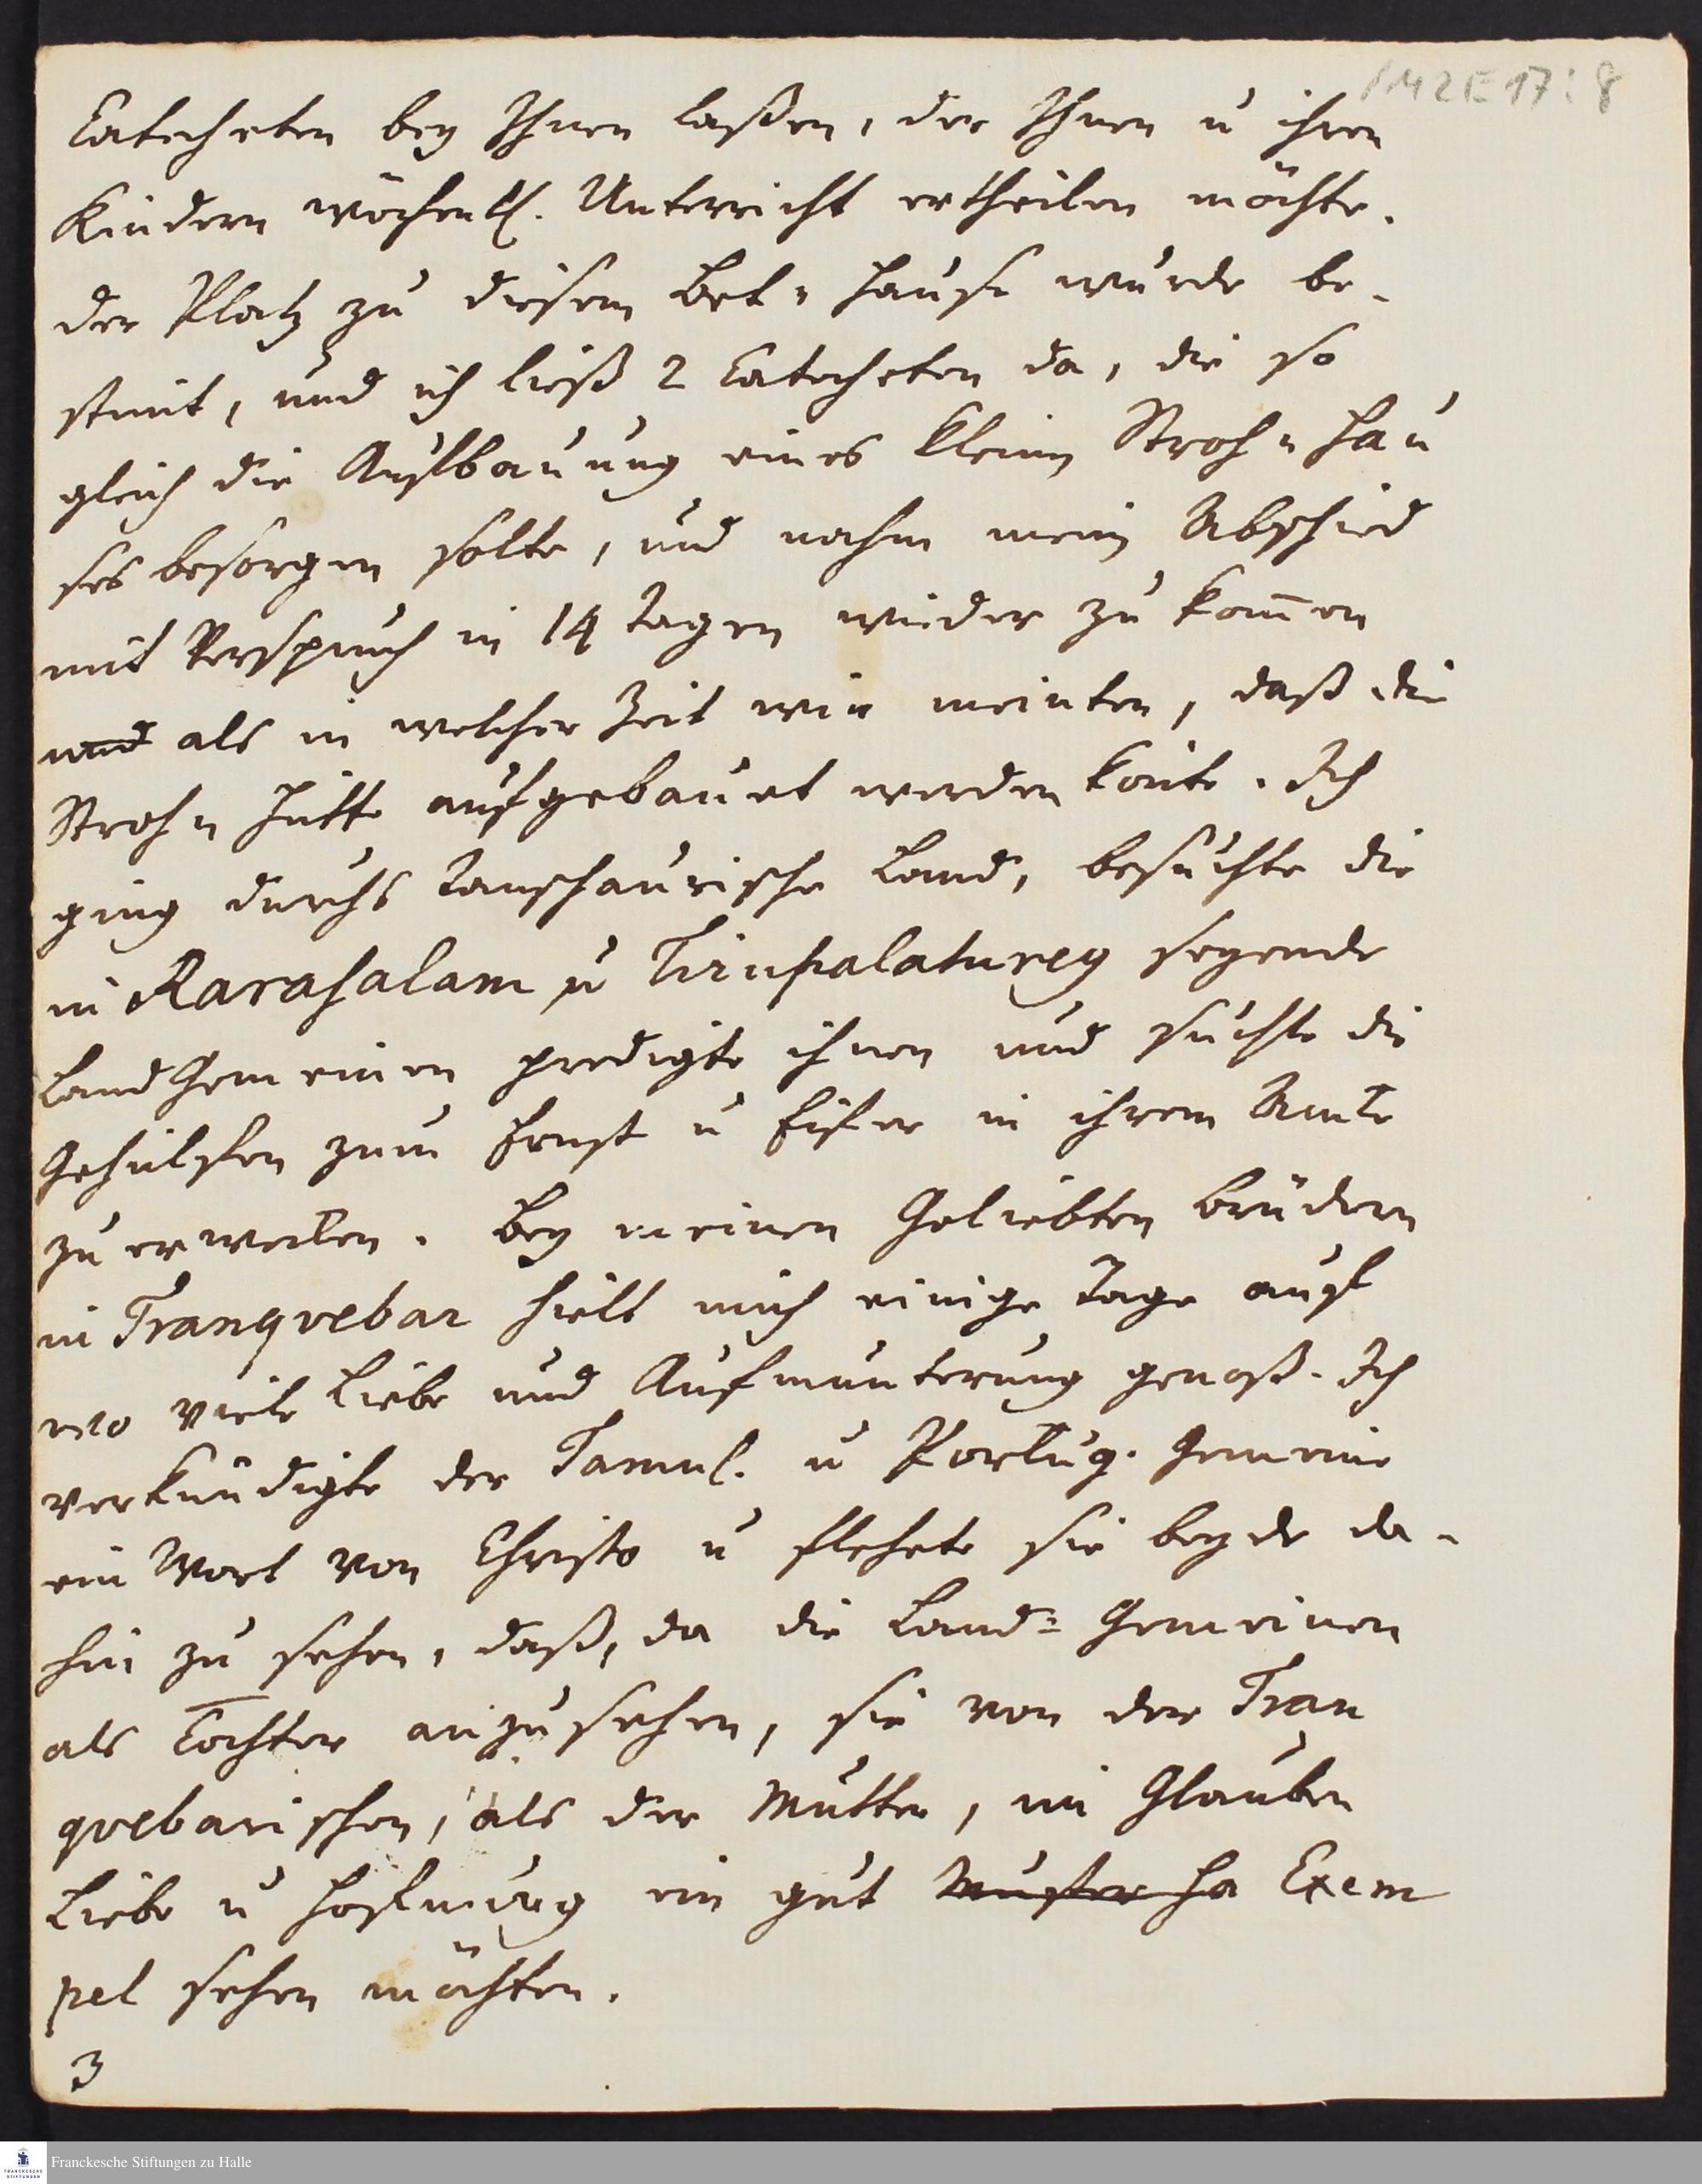 1 M 2 E 17 : 8
Catecheten bey Ihnen laßen, der Ihnen u ihren
Kindern wöchentl. Unterricht ertheilen möchte.
der Platz zu diesem Bet- Hause wurde be-
stim̄t, und ich ließ 2 Catecheten da, die so
gleich die Aufbauung eines kleinen Stroh- Hau
ses besorgen solte, und nahm mein Abschied
mit Verspruch in 14 Tagen wieder zu kom̄en
und als in welcher Zeit wir meinten, daß die
Stroh- Hütte aufgebauet werden kon̄te. Ich
ging durchs Tanschaurische Land, besuchte die
in Rarasalam u Tirupalatturey seyende
Land Gemeinen predigte ihnen und suchte die
Gehülfen zum Ernst u Eifer in ihrem Amte
zu erwecken. Bey meinen Geliebten Brüdern
in Tranqvebar hielt mich einige Tage auf
wo viele Liebe und Aufmunterung genoß. Ich
verkündigte der Tamul. u Portug. Gemeine
ein Wort von Christo u flehete sie beyde da-
hin zu sehen, daß, da die Land- Gemeinen
als Tochter anzusehen, sie von der Tran
qvebarischen, als der Mutter, im Glauben
Liebe u Hofnung ein gut Muster ha Exem
pel sehen möchten.
3
Franckesche Stiftungen zu Halle
FRANCKESCHE
STIFTUNGEN